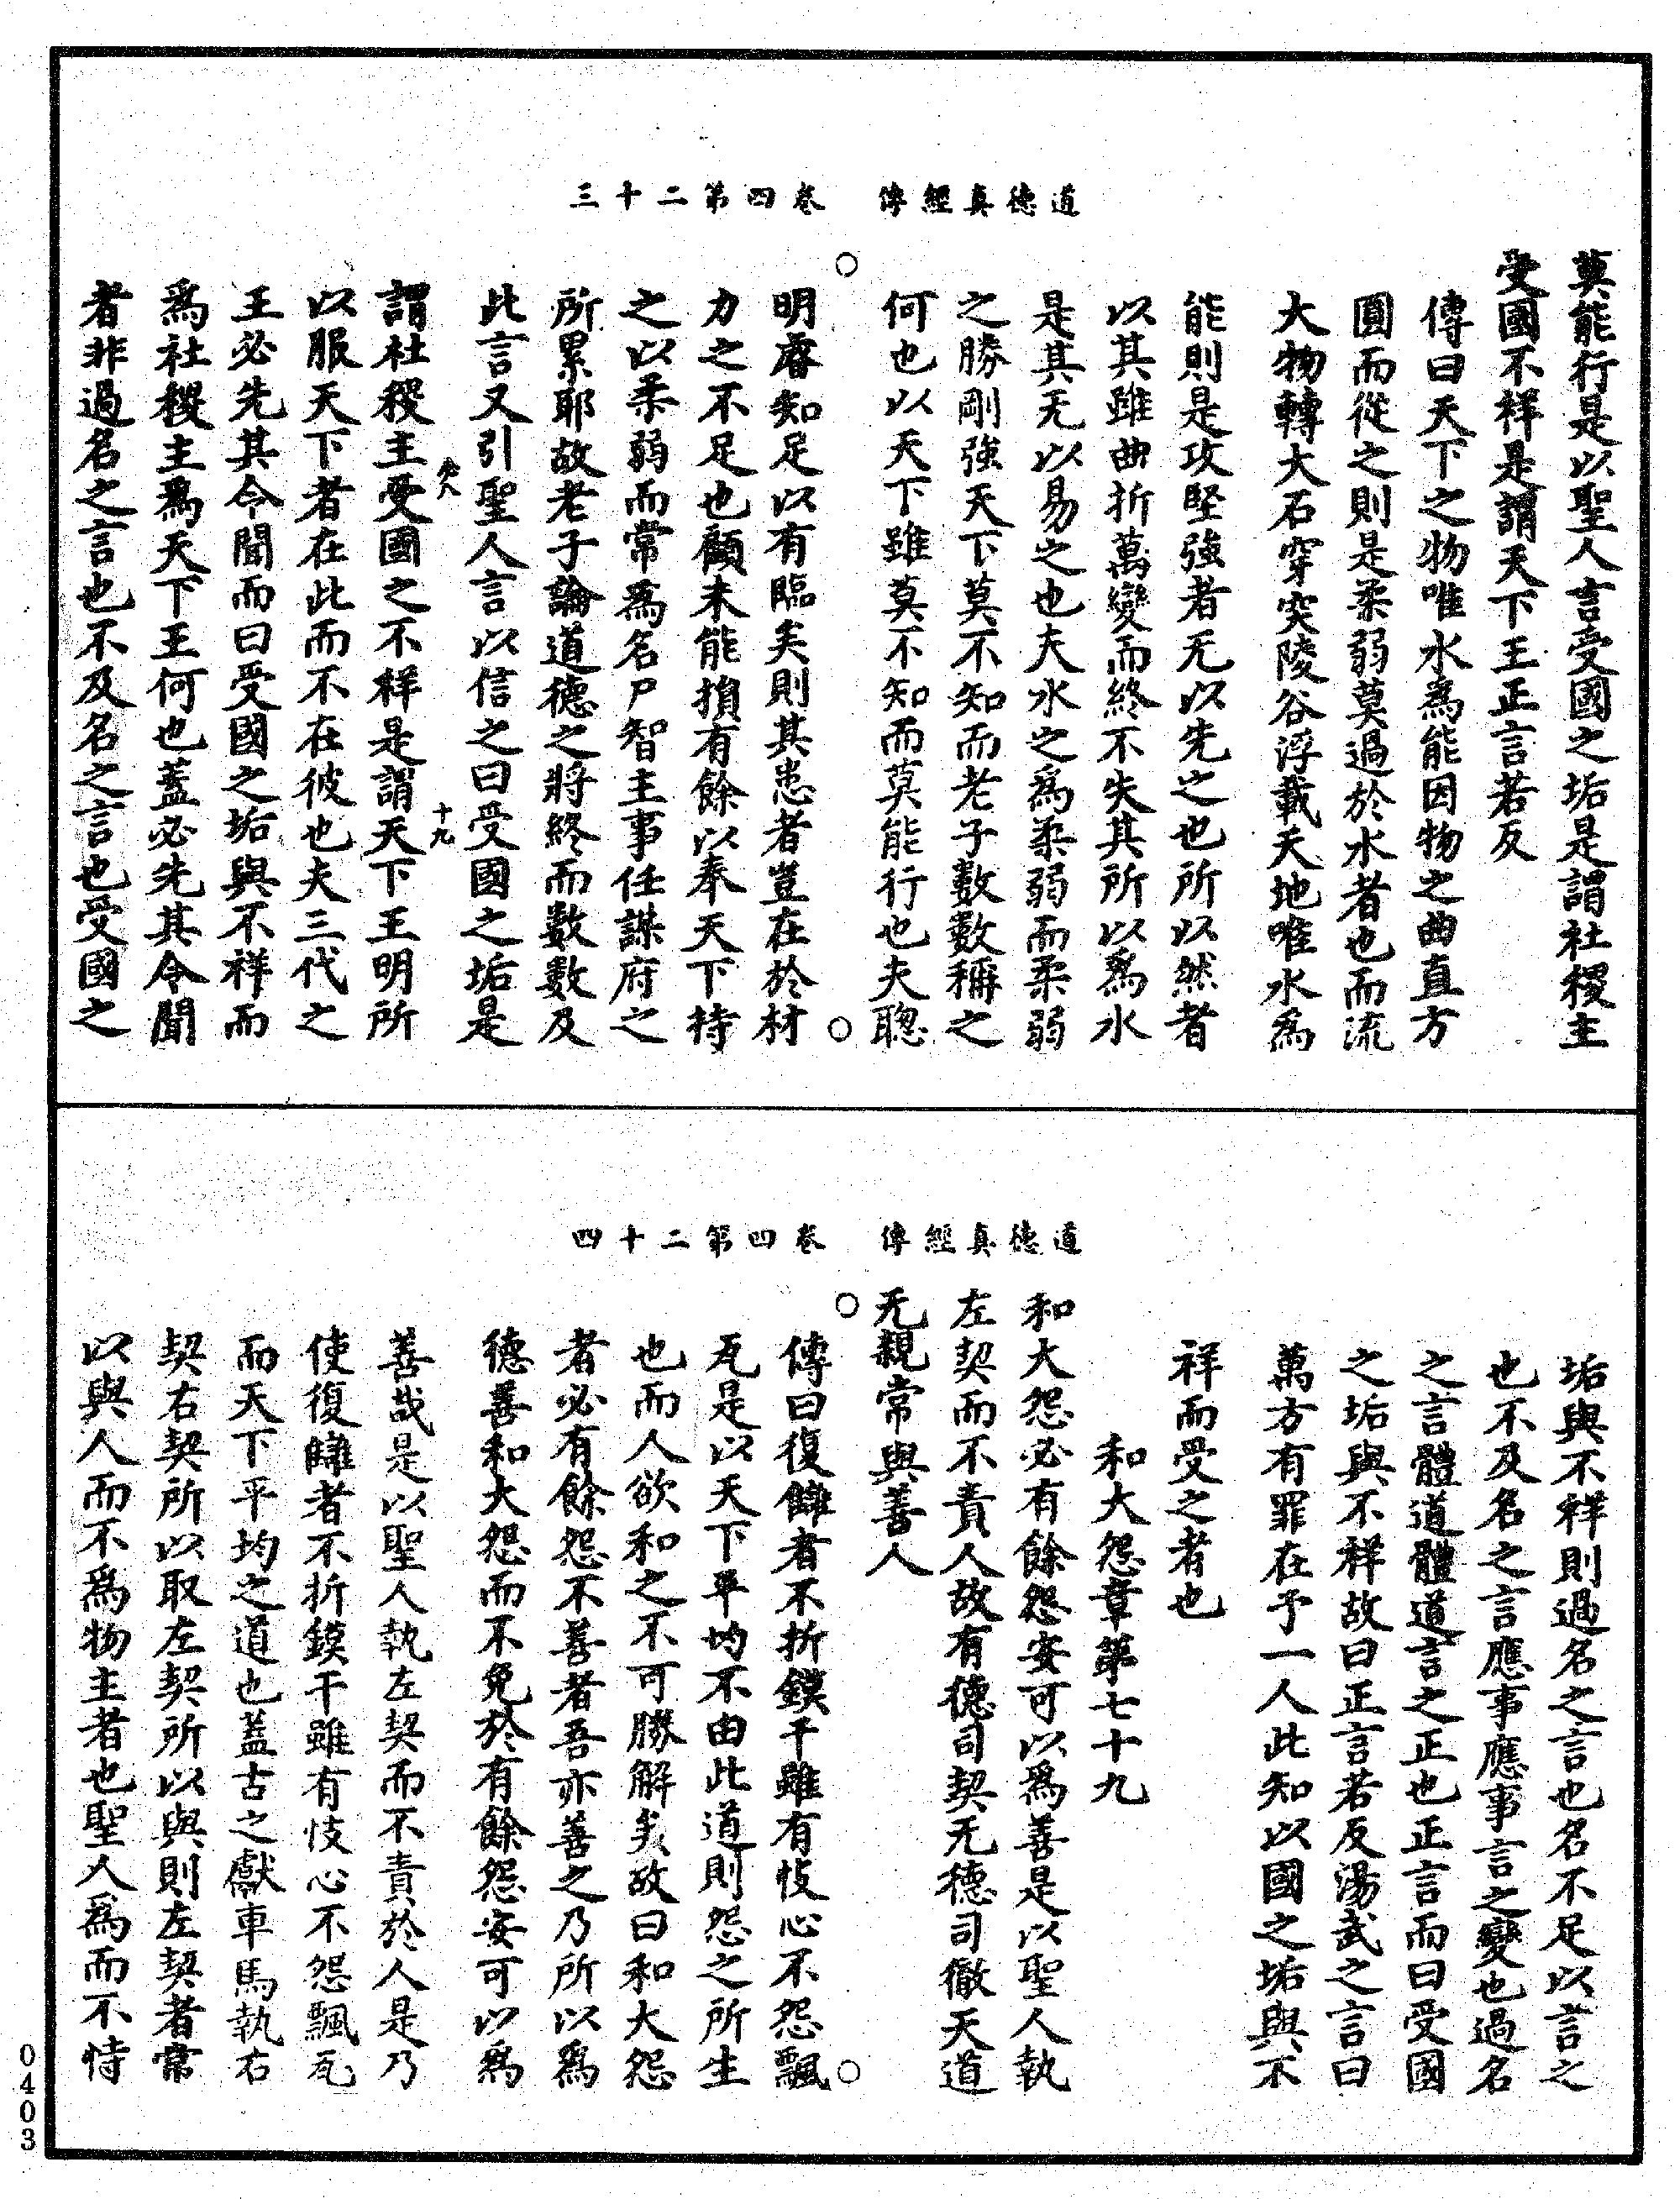 道德真經傳　卷四第二十三
莫能行是以聖人言受國之垢是謂社稷主
受國不祥是謂天下王正言若反
傳曰天下之物唯水為能因物之曲直方
圓而從之則是柔弱莫過於水者也而流
大物轉大石穿突陵谷浮載天地唯水為
能則是攻堅強者无以先之也所以然者
以其雖曲折萬變而終不失其所以爲水
是其无以易之也夫水之爲柔弱而柔弱
之勝剛強天下莫不知而老子數數稱之
何也以天下雖莫不知而莫能行也夫聰
明睿知足以有臨矣則其患者豈在於材
力之不足也顧未能損有餘以奉天下持
之以柔弱而常爲名尸智主事任謀府之
所累耶故老子論道德之將終而數數及
此言又引聖人言以信之曰受國之垢是
謂社稷主受國之不祥是謂天下王明所
以服天下者在此而不在彼也夫三代之
王必先其令聞而曰受國之垢與不祥而
爲社稷主爲天下王何也蓋必先其令聞
者非過名之言也不及名之言也受國之
道德真經傳　卷四第二十四
垢與不祥則過名之言也名不足以言之
也不及名之言應事應事言之變也過名
之言體道體道言之正也正言而曰受國
之垢與不祥故曰正言若反湯武之言曰
萬方有罪在予一人此知以國之垢與不
祥而受之者也
和大怨章第七十九
和大怨必有餘怨安可以爲善是以聖人執
左契而不責人故有德司契无德司徹天道
无親常與善人
傳曰復讎者不折鏌干雖有忮心不怨飄
瓦是以天下平均不由此道則怨之所生
也而人欲和之不可勝解矣故曰和大怨
者必有餘怨不善者吾亦善之乃所以為
德善和大怨而不免於有餘怨安可以爲
善哉是以聖人執左契而不責於人是乃
使復讎者不折鏌干雖有忮心不怨飄瓦
而天下平均之道也蓋古之獻車馬執右
契右契所以取左契所以與則左契者常
以與人而不爲物主者也聖人爲而不恃
0403